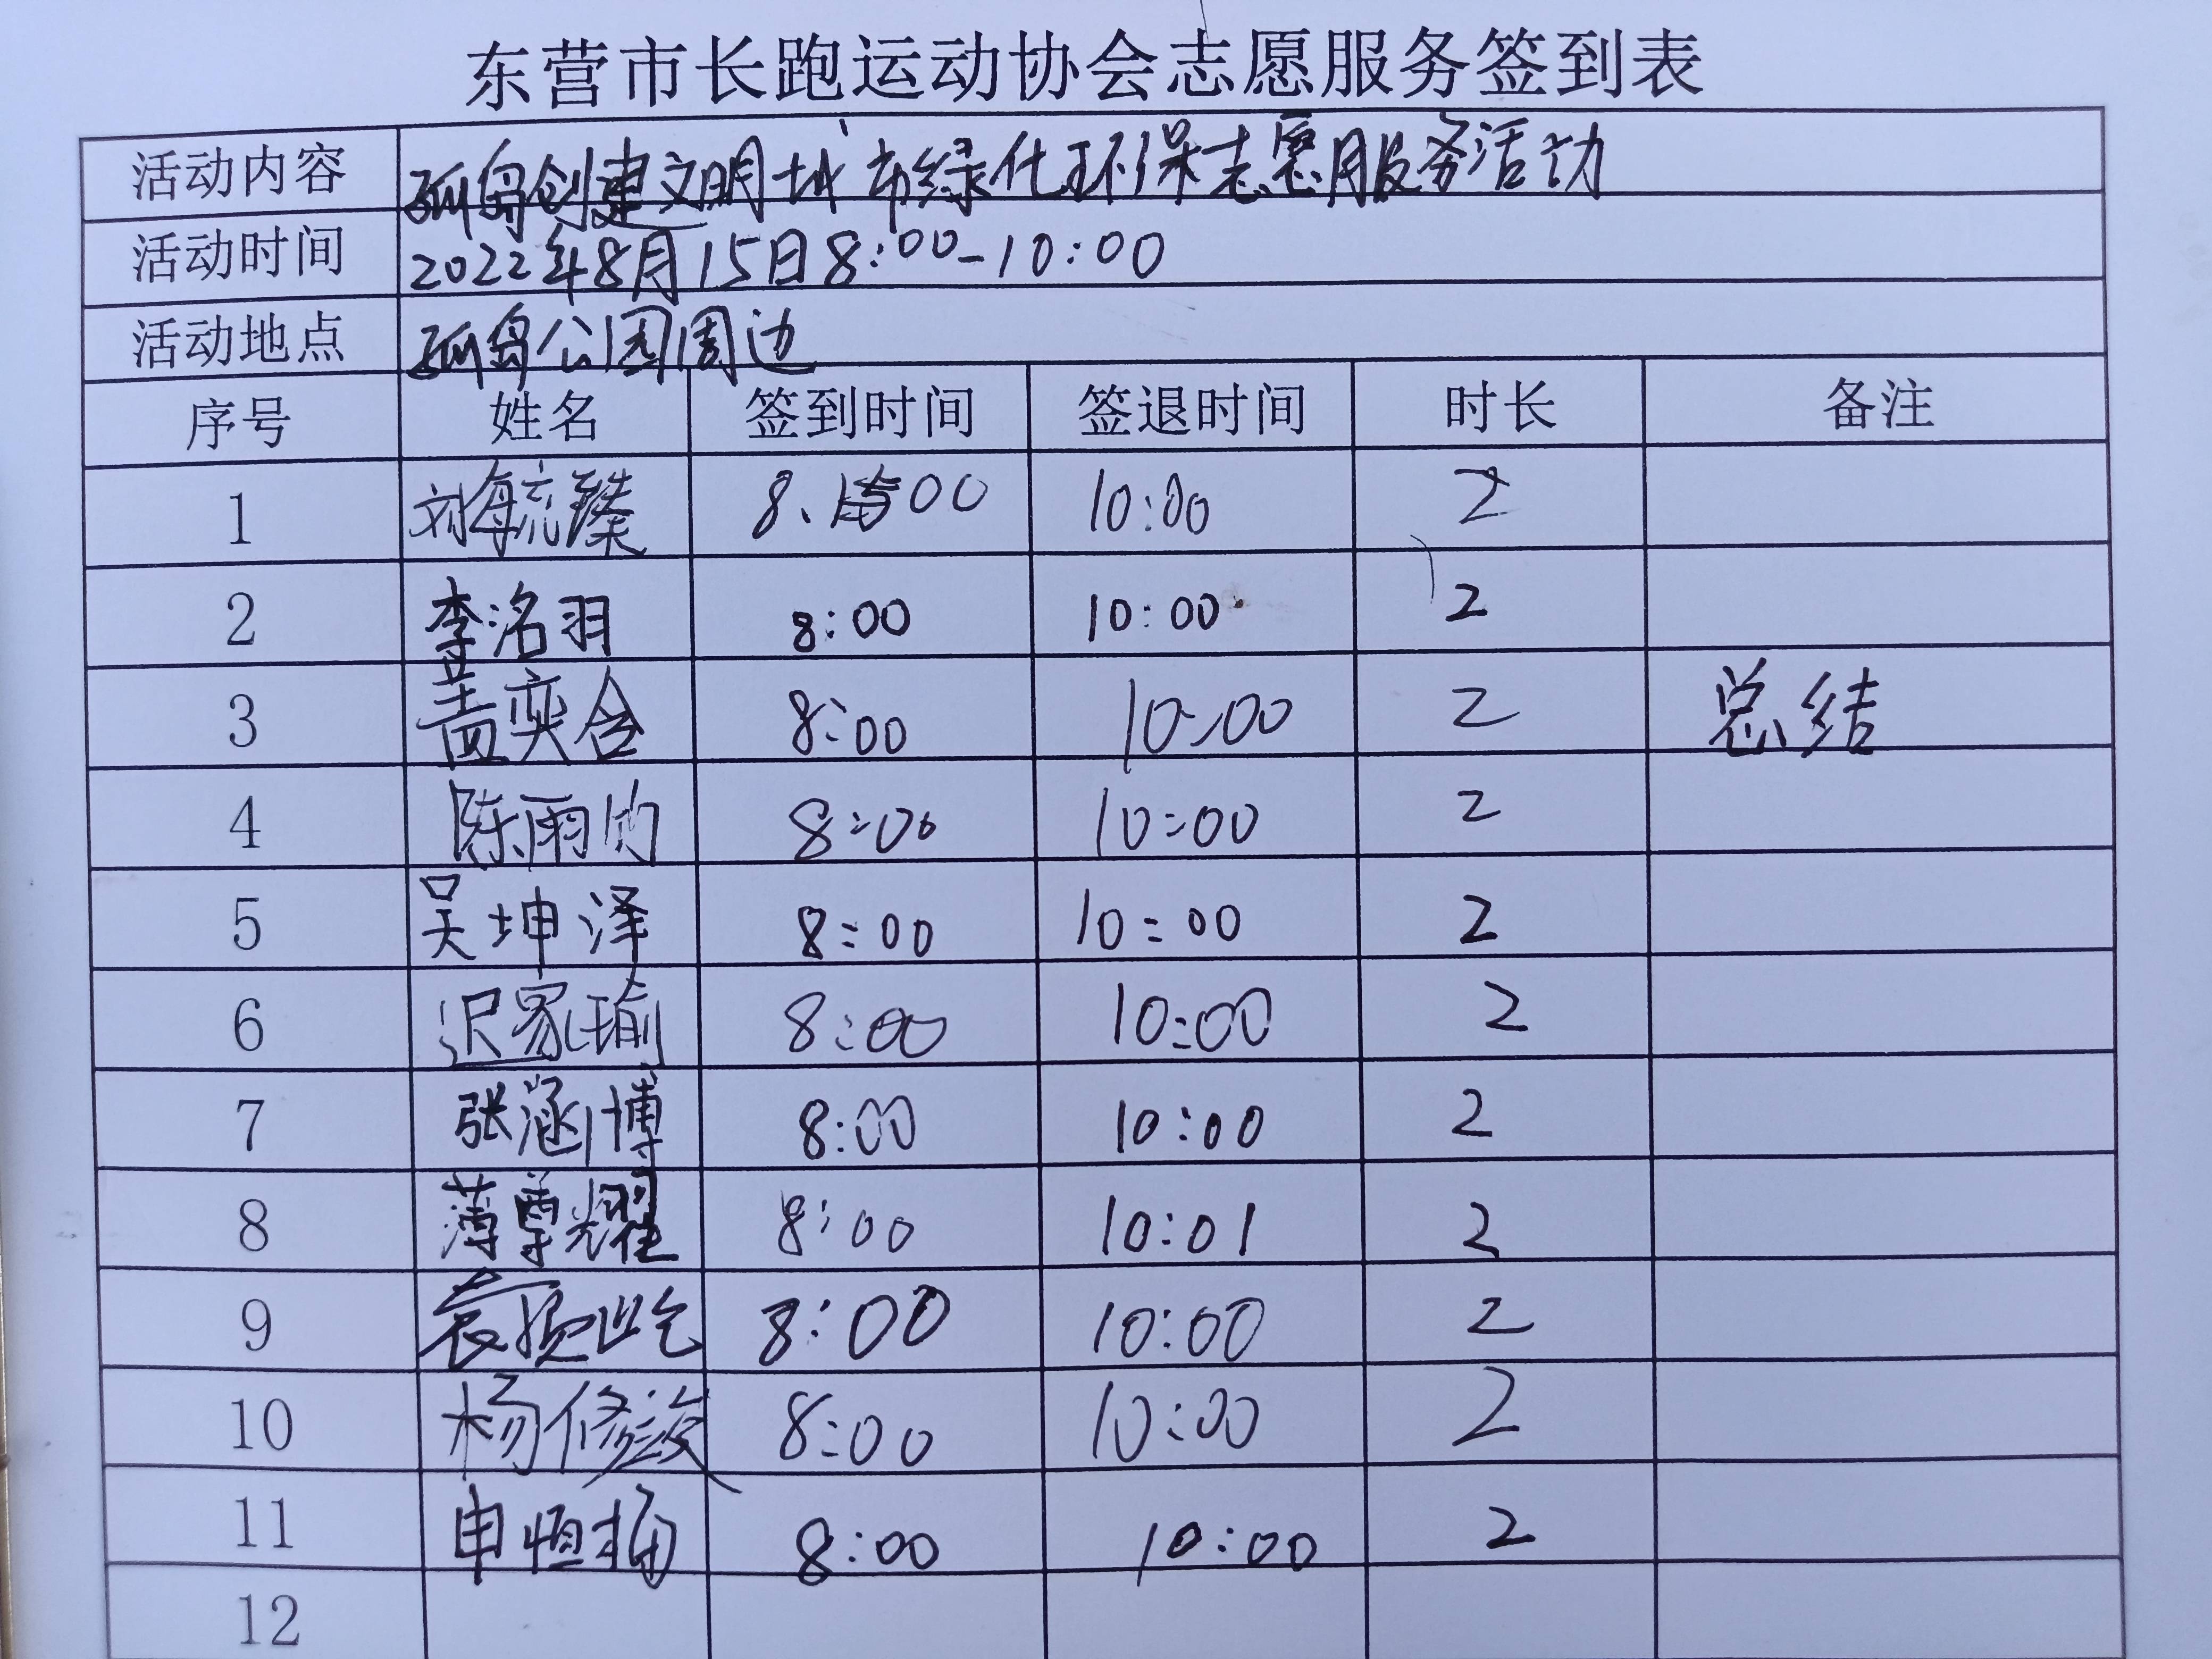 东营市长跑运动协会志愿服务签到表
活动内容 孤岛创建文明城市绿化环保志愿服务活动
活动时间 2022年8月15日8:00-10:00
活动地点 孤岛公园周边
序号 姓名 签到时间 签退时间 时长 备注
1 刘毓臻 8:00 10:00 2
2 李洺羽 8:00 10:00 2
3 盖奕含 8:00 10:00 2 总结
4 陈雨 8:00 10:00 2
5 吴坤泽 8:00 10:00 2
6 迟家瑜 8:00 10:00 2
7 张涵博 8:00 10:00 2
8 薄尊耀 8:00 10:01 2
9 袁 8:00 10:00 2
10 杨修 8:00 10:00 2
11 申恒 8:00 10:00 2
12